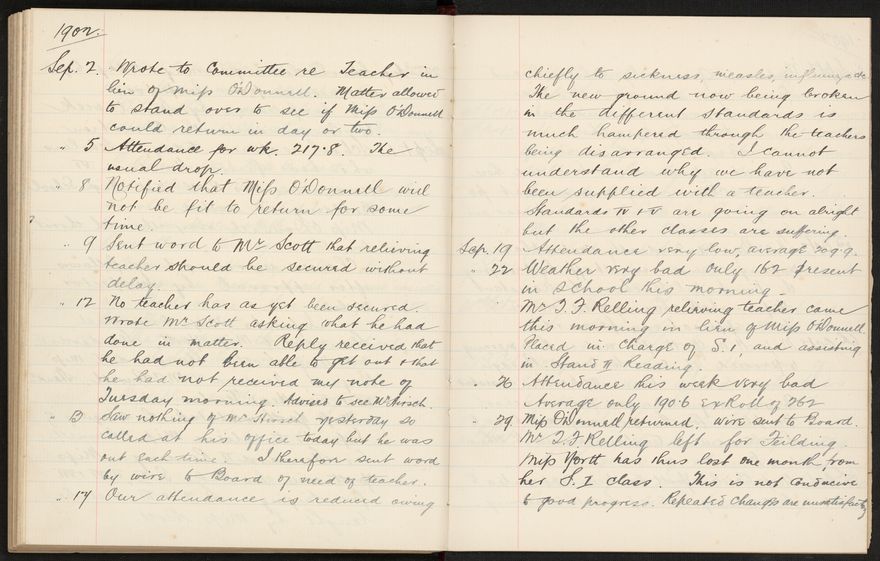 1902.
Sep. 2. Wrote to Committee re Teacher in
lieu of Miss O'Donnell. Matter allowed
to stand over to see if Miss O'Donnell
could return in day or two.
" 5 Attendance for wk. 217.8. The
usual drop.
" 8 Notified that Miss O'Donnell will
not be fit to return for some
time.
" 9 Sent word to Mr Scott that relieving
teacher should be secured without
delay.
" 12 No teacher has as yet been secured.
Wrote Mr Scott asking what he had
done in matter. Reply received that
he had not been able to get out & that
he had not received my note of
Tuesday morning. Advised to see Mr Hirsch.
" 13 Saw nothing of Mr Hirsch yesterday so
called at his office today but he was
out each time. I therefore sent word
by wire to Board of need of teacher.
" 17 Our attendance is reduced owing
chiefly to sickness, measles, influenza &c
The new ground now being broken
in the different standards is
much hampered through the teachers
being disarranged. I cannot
understand why we have not
been supplied with a teacher.
Standards IV & V are going on alright
but the other classes are suffering.
Sep. 19 Attendance very low, average 209.9.
" 22 Weather very bad only 162 present
in school this morning.
Mr T. F. Relling relieving teacher came
this morning in lieu of Miss O'Donnell.
Placed in charge of S. 1, and assisting
in Stand II Reading.
" 26 Attendance this week very bad
Average only 190.6 ex Roll of 262
" 29. Miss O'Donnell returned. Wire sent to Board.
Mr T. F Relling left for Feilding.
Miss has thus lost one month from
her S. I class. This is not conducive
to good progress. Repeated changes are unsatisfactory